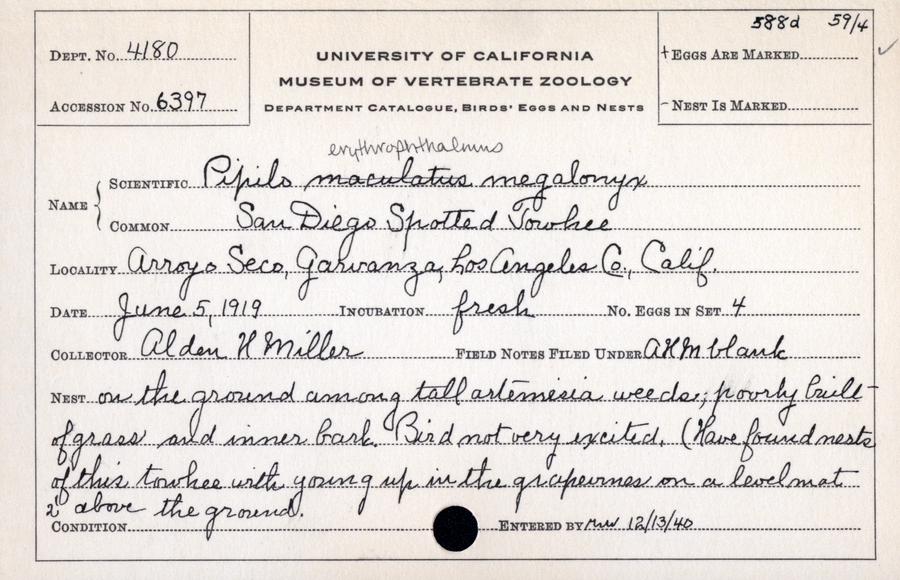 588d 59/4
DEPT. NO. 4180
UNIVERSITY OF CALIFORNIA
+ EGGS ARE MARKED
MUSEUM OF VERTEBRATE ZOOLOGY
ACCESSION NO. 6397
DEPARTMENT CATALOGUE, BIRDS' EGGS AND NESTS
- NEST IS MARKED
erythrophthalmus
NAME { SCIENTIFIC Pipilo maculatus megalonyx
COMMON San Diego Spotted Towhee
LOCALITY Arroyo Seco, Garvanza, Los Angeles Co., Calif.
DATE June 5, 1919 INCUBATION fresh NO. EGGS IN SET 4
COLLECTOR Alden H Miller FIELD NOTES FILED UNDER AHM blank
NEST on the ground among tall artemesia weeds; poorly built
of grass and inner bark. Bird not very excited. (Have found nests
of this towhee with young up in the grapevines on a level mat
2' above the ground.
CONDITION ENTERED BY 12/13/40